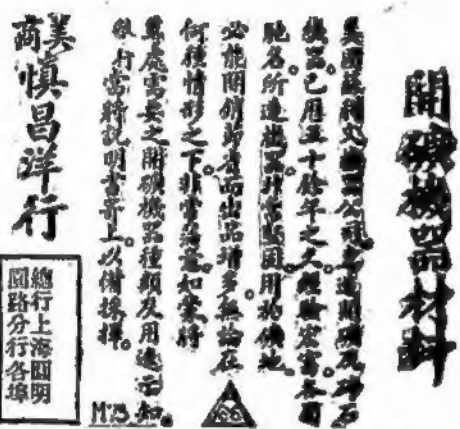 開礦機器材料
美國蘇利文機器公司專造開礦及碎石
機器已歷五十餘年之久經驗宏富各國
馳名所造機器非常堅固用於礦地
必能開銷節省而出品增多無論在
何種情形之下非常滿意如蒙將
尊處需要之開礦機器種類及用途示知
敝行當將說明書寄上以備採擇
美商
慎昌洋行
總行上海圓明
園路分行各埠